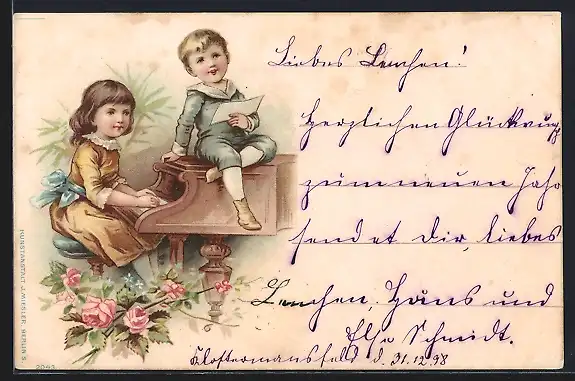 Liebes Lenchen!
Herzlichen Glückwunsch
zum neuen Jahr
sendet dir, liebes
Lenchen, Hans und
Else Schmidt.
Klostermansfeld d. 31.12.98
KUNSTANSTALT J. MIESLER, BERLIN S.
2043